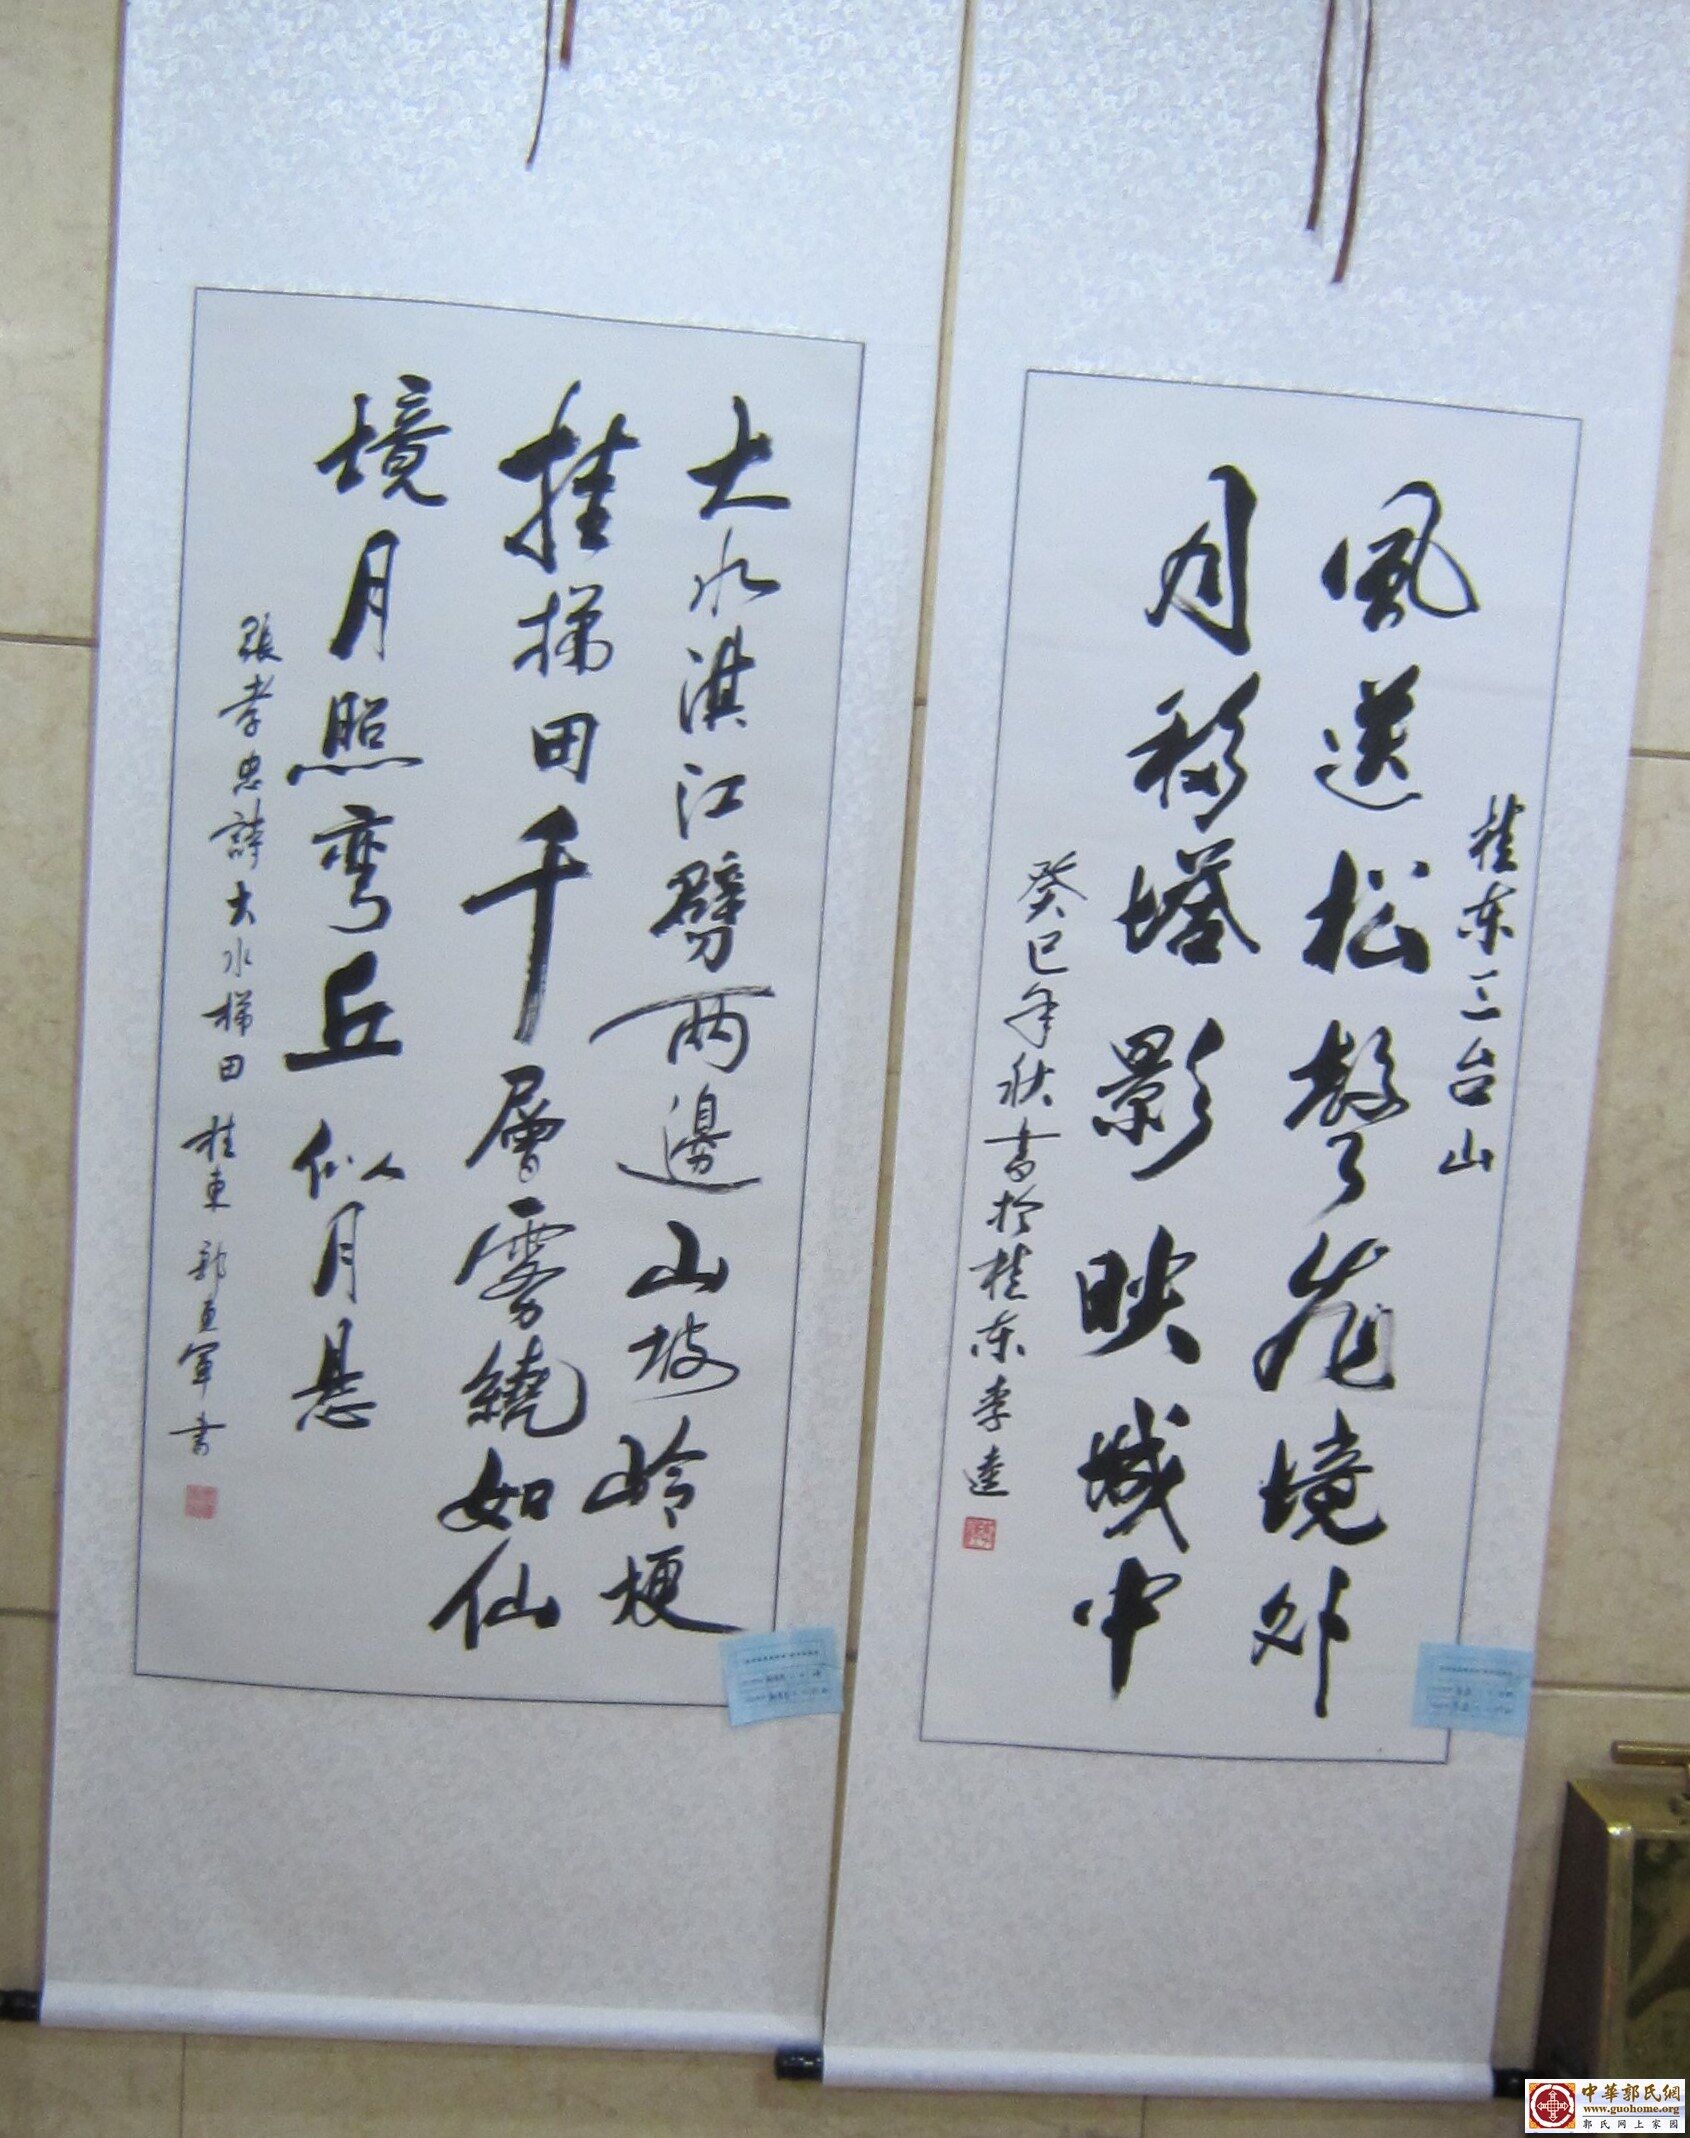 桂东三台山
风送松声飛境外
月移塔影映城中
癸巳年秋書於桂东李逵
大水淇江劈两邊山坡岭梗
挂梯田千層雾繞如仙
境月照弯丘似月悬
張孝忠詩大水梯田 桂東 郭亚軍书
中華郭氏網
www.guohome.org
郭氏网上家园